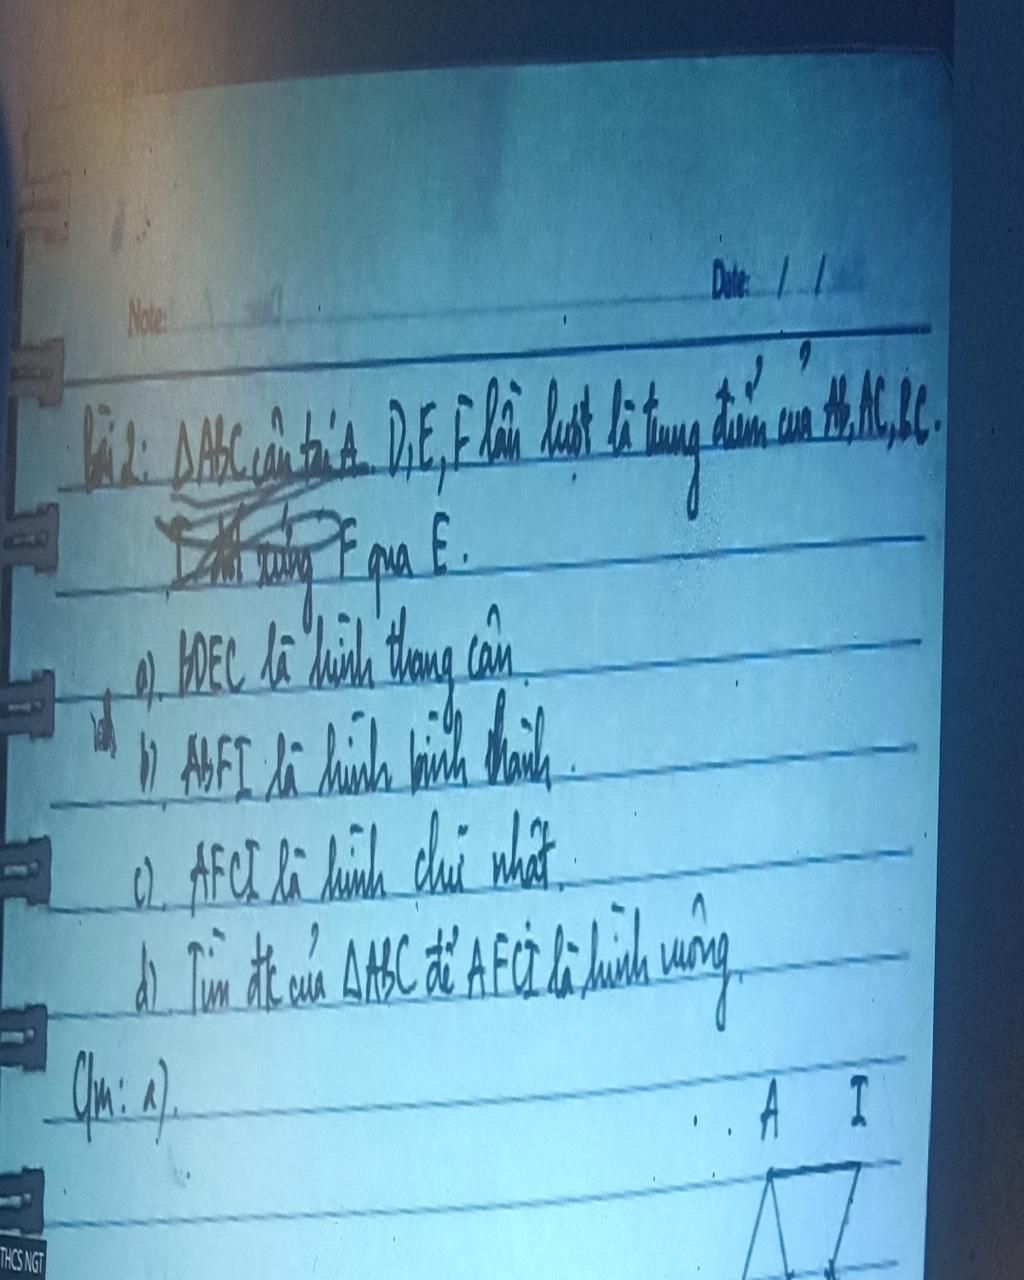 Note:
Date: / /
Bài 2: ΔABC cân tại A. D, E, F lần lượt là trung điểm của AB, AC, BC.
xứng F qua E.
a). BDEC là hình thang cân
b) ABFI là hình bình hành.
c). AFCI là hình chữ nhật.
d). Tìm đk của ΔABC để AFCI là hình vuông.
C/m: a).
A I
THCS NGT